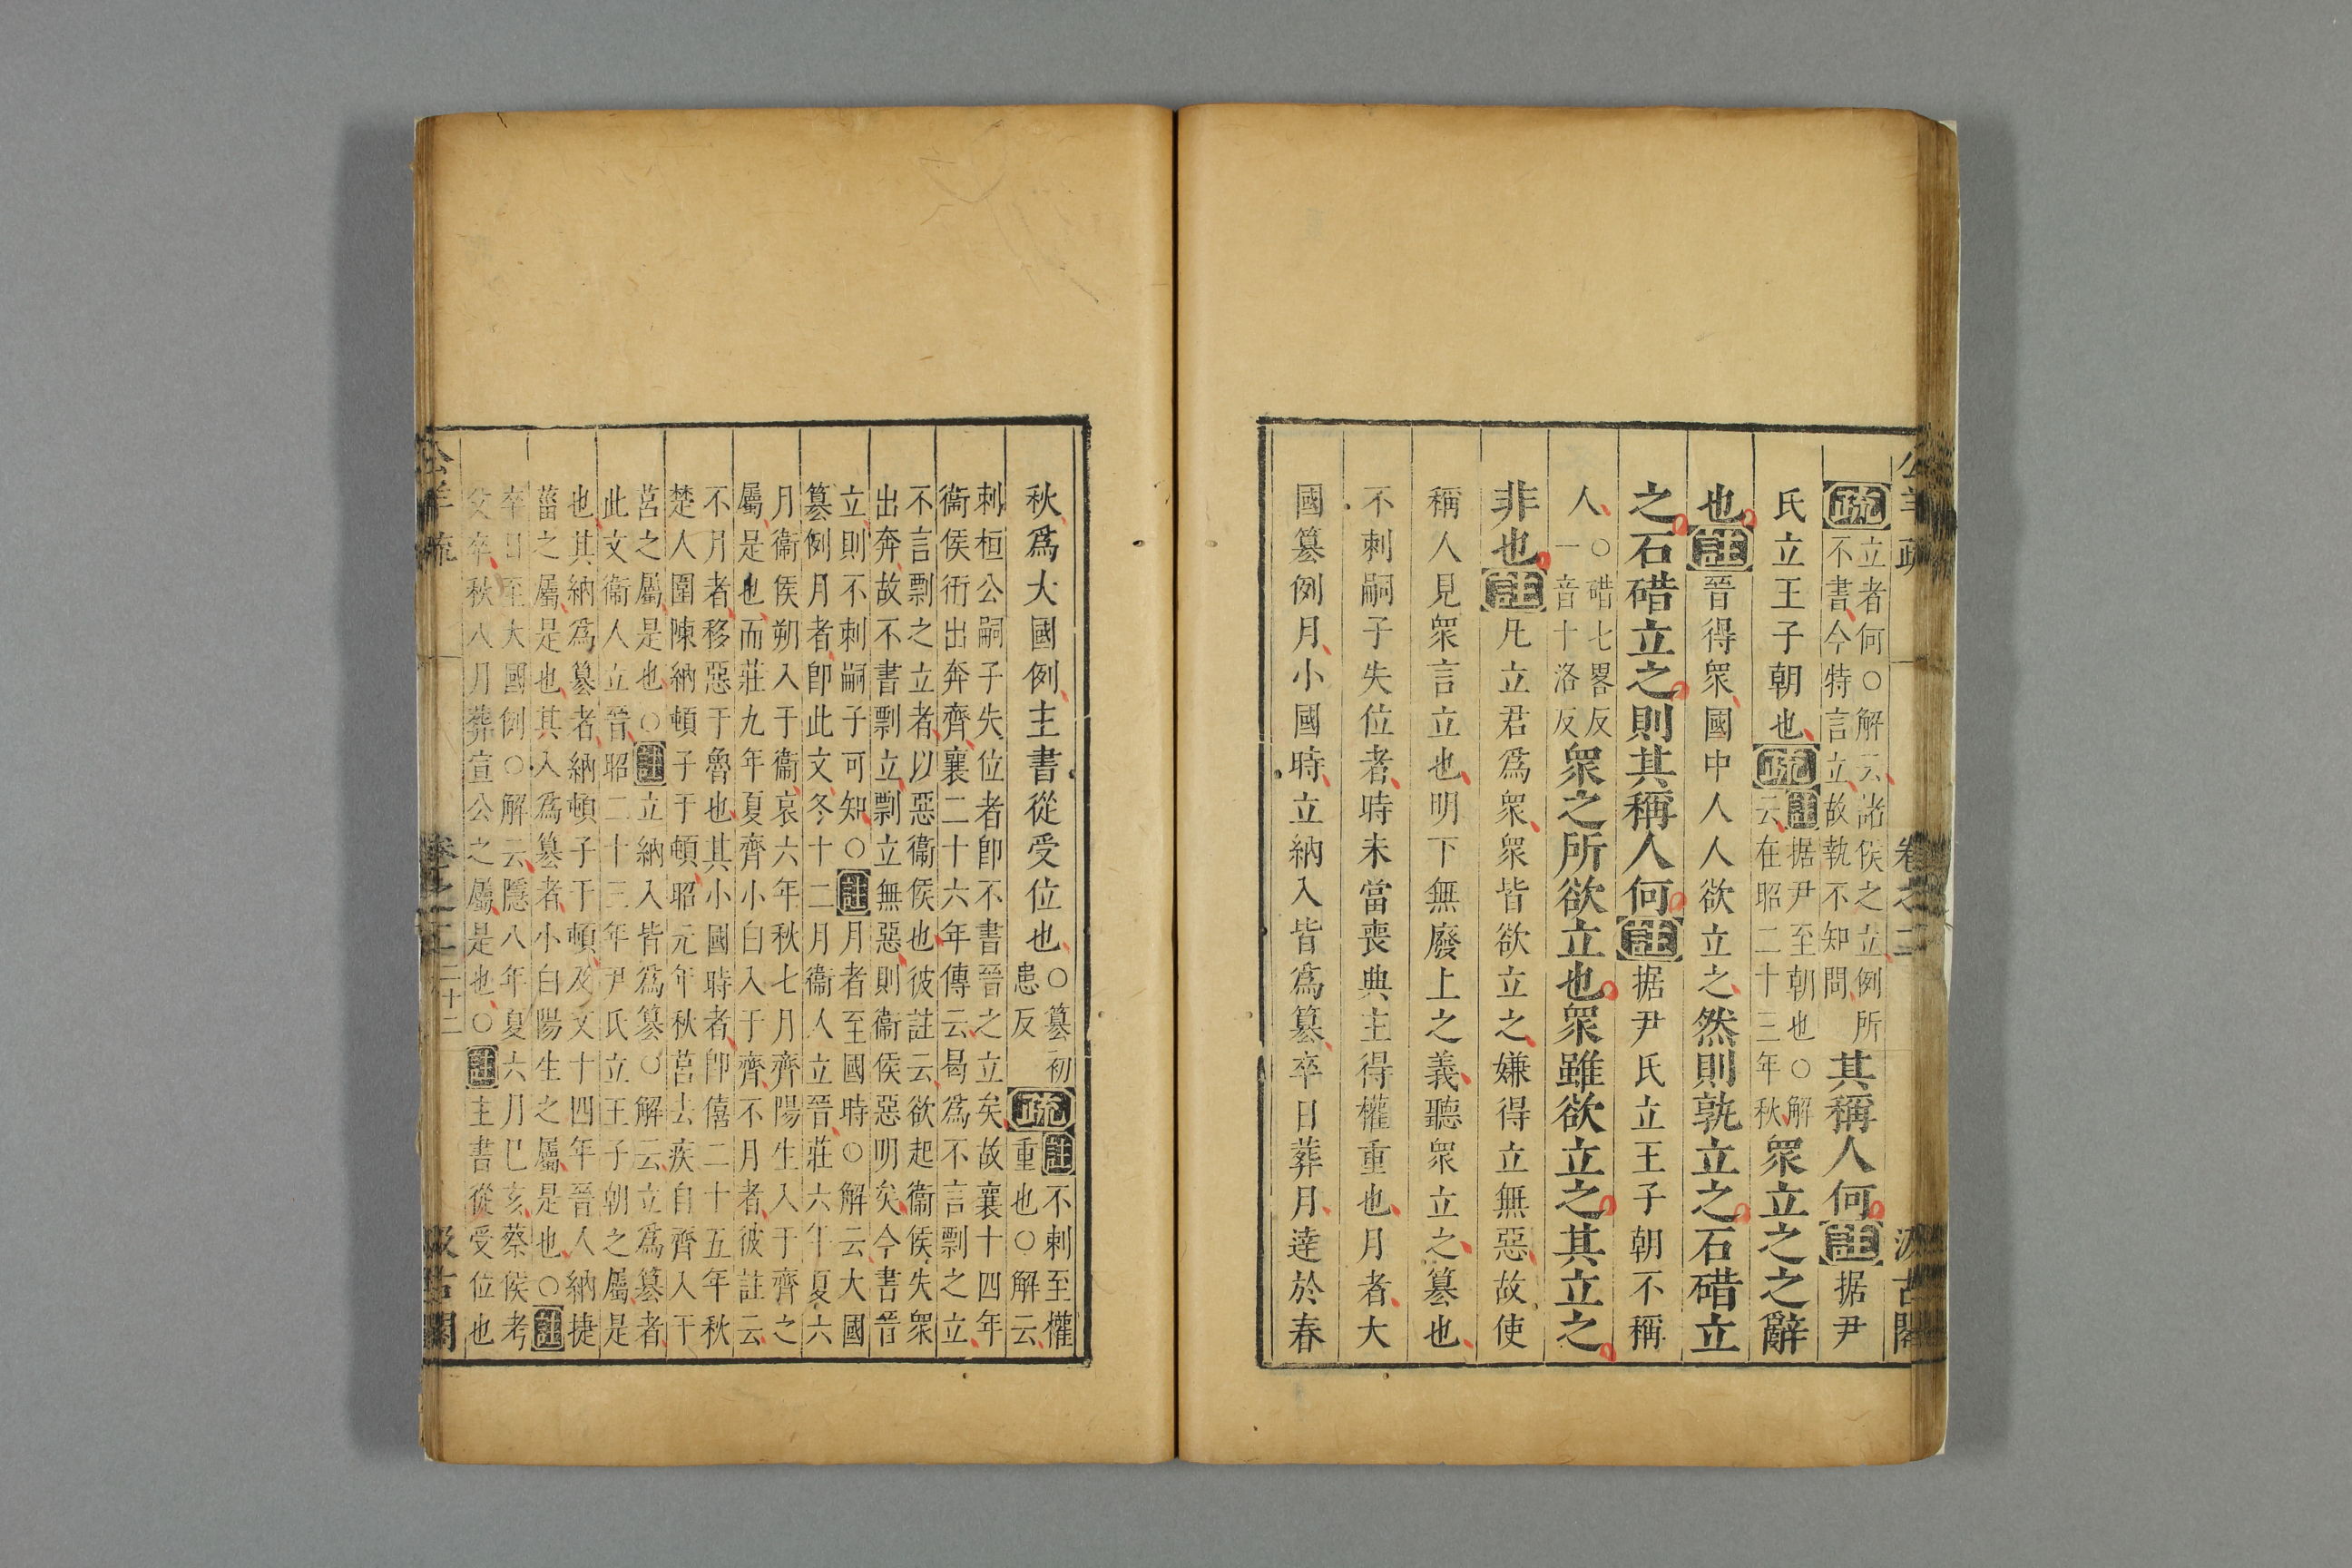 公羊疏 卷之二 汲古閣
疏立者何○解云諸侯之立例所
不書今特言立故執不知問其稱人何註据尹
氏立王子朝也疏註据尹至朝也○解
云在昭二十三年秋衆立之之辭
也註晉得衆國中人人欲立之然則孰立之石碏立
之石碏立之則其稱人何註据尹氏立王子朝不稱
人○碏七畧反
一音十洛反衆之所欲立也衆雖欲立之其立之
非也註凡立君爲衆衆皆欲立之嫌得立無惡故使
稱人見衆言立也明下無廢上之義聽衆立之篡也
不刺嗣子失位者時未當喪典主得權重也月者大
國篡例月小國時立納入皆爲篡卒日葬月達於春
秋爲大國例主書從受位也○篡初
患反疏註不刺至權
重也○解云
刺桓公嗣子失位者卽不書晉之立矣故襄十四年
衞侯衎出奔齊襄二十六年傳云曷爲不言剽之立
不言剽之立者以惡衞侯也彼註云欲起衞侯失衆
出奔故不書剽立剽立無惡則衞侯惡明矣今書晉
立則不刺嗣子可知○註月者至國時○解云大國
篡例月者卽此文冬十二月衞人立晉莊六年夏六
月衞侯朔入于衞哀六年秋七月齊陽生入于齊之
屬是也而莊九年夏齊小白入于齊不月者彼註云
不月者移惡于魯也其小國時者卽僖二十五年秋
楚人圍陳納頓子于頓昭元年秋莒去疾自齊入于
莒之屬是也○註立納入皆爲篡○解云立爲篡者
此文衞人立晉昭二十三年尹氏立王子朝之屬是
也其納爲篡者納頓子于頓及文十四年晉人納捷
菑之屬是也其入爲篡者小白陽生之屬是也○註
卒日至大國例○解云隱八年夏六月巳亥蔡侯考
父卒秋八月葬宣公之屬是也○註主書從受位也
公羊疏 卷之二 二十二 汲古閣